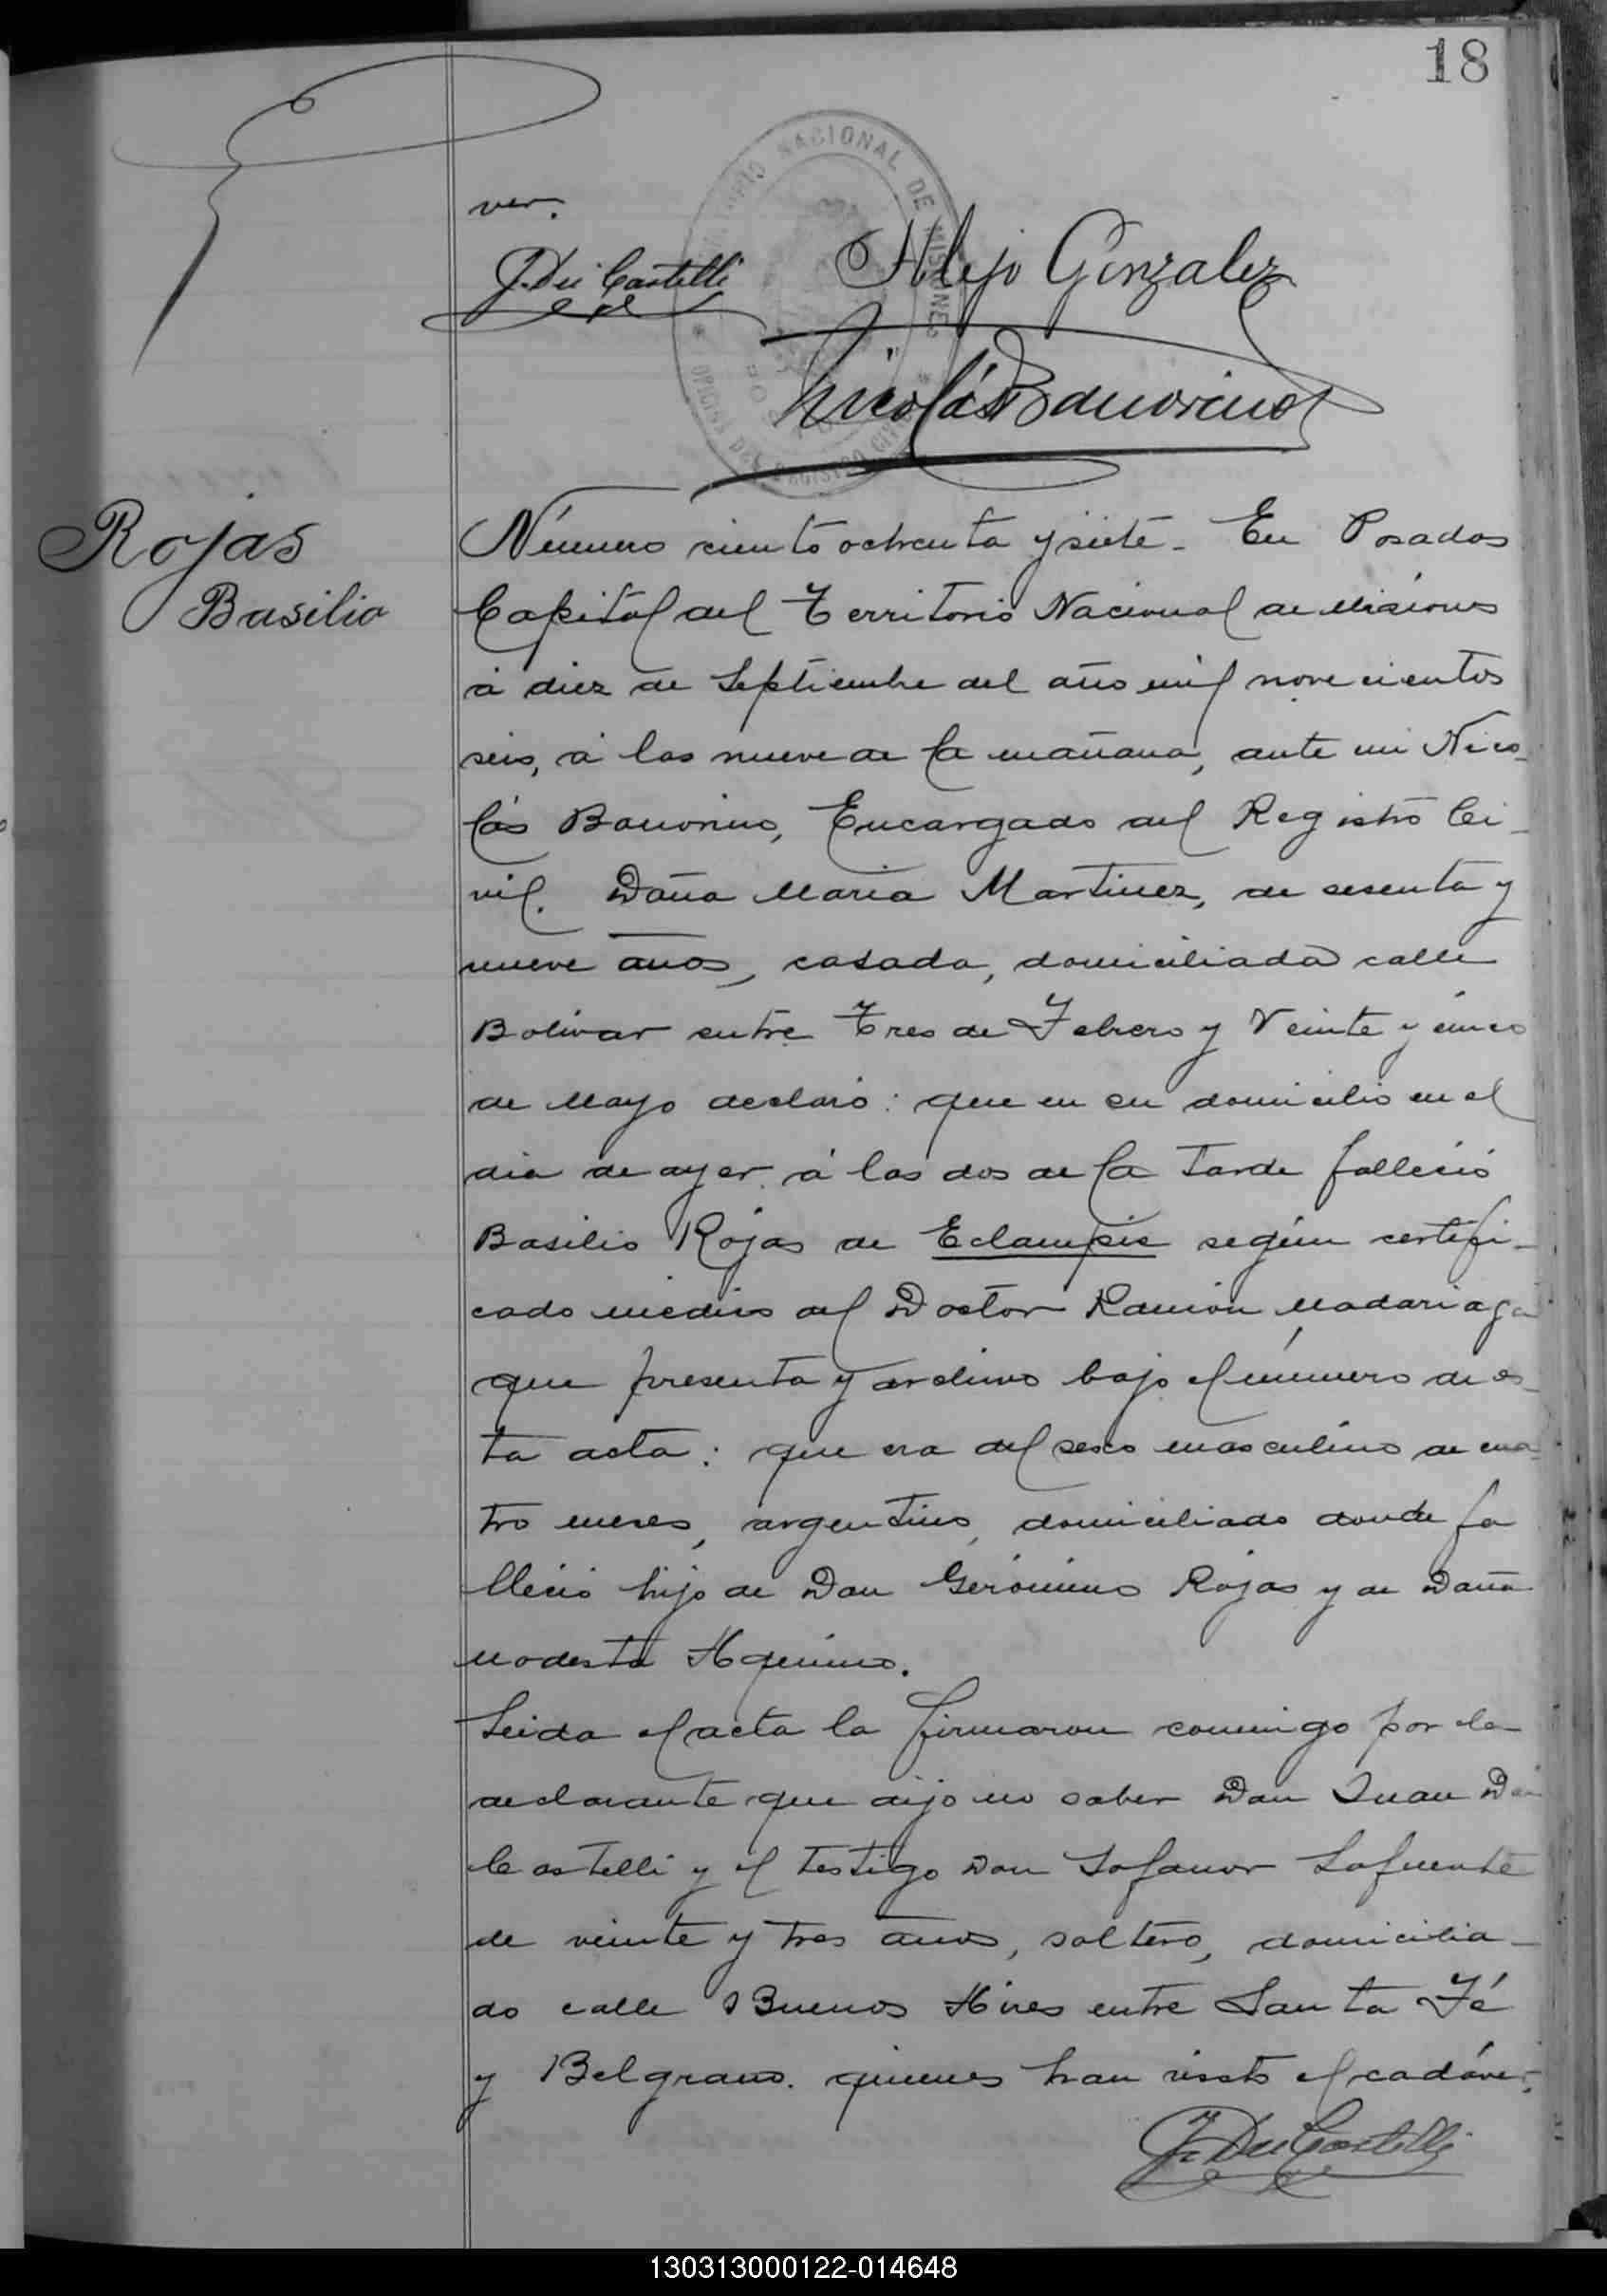 18
ver.
J. Dei Castelli
Alejo Gonzalez
TERRITORIO NACIONAL DE MISIONES
OFICINA DEL REGISTRO CIVIL
Nicolás
Rojas
Basilio
Número ciento ochenta y siete - En Posadas
Capital del Territorio Nacional de Misiones
á diez de Septiembre del año mil nove cientos
seis, á las nueve de la mañana, ante mi Nico-
lás Encargado del Registro Ci-
vil. Doña Maria Martinez, de sesenta y
nueve años, casada, domiciliada calle
Bolivar entre Tres de Febrero y Veinte y cinco
de Mayo declaró: que en su domicilio en el
dia de ayer á las dos de la tarde falleció
Basilio Rojas de Eclampsia según certifi-
cado médico del Doctor Ramón Madariaga
que presenta y archivo bajo el número de es-
ta acta: que era del sexo masculino de cua-
tro meses, argentino, domiciliado donde fa
lleció hijo de Don Gerónimo Rojas y de Doña
Modesta Aquino.
Leida el acta la firmaron conmigo por la
declarante que dijo no saber Don Juan Dei
Castelli y el testigo Don Lafuente
de veinte y tres años, soltero, domicilia-
do calle Buenos Aires entre Santa Fé
y Belgrano. quienes han visto el cadáver.
J. Dei Castelli
130313000122-014648